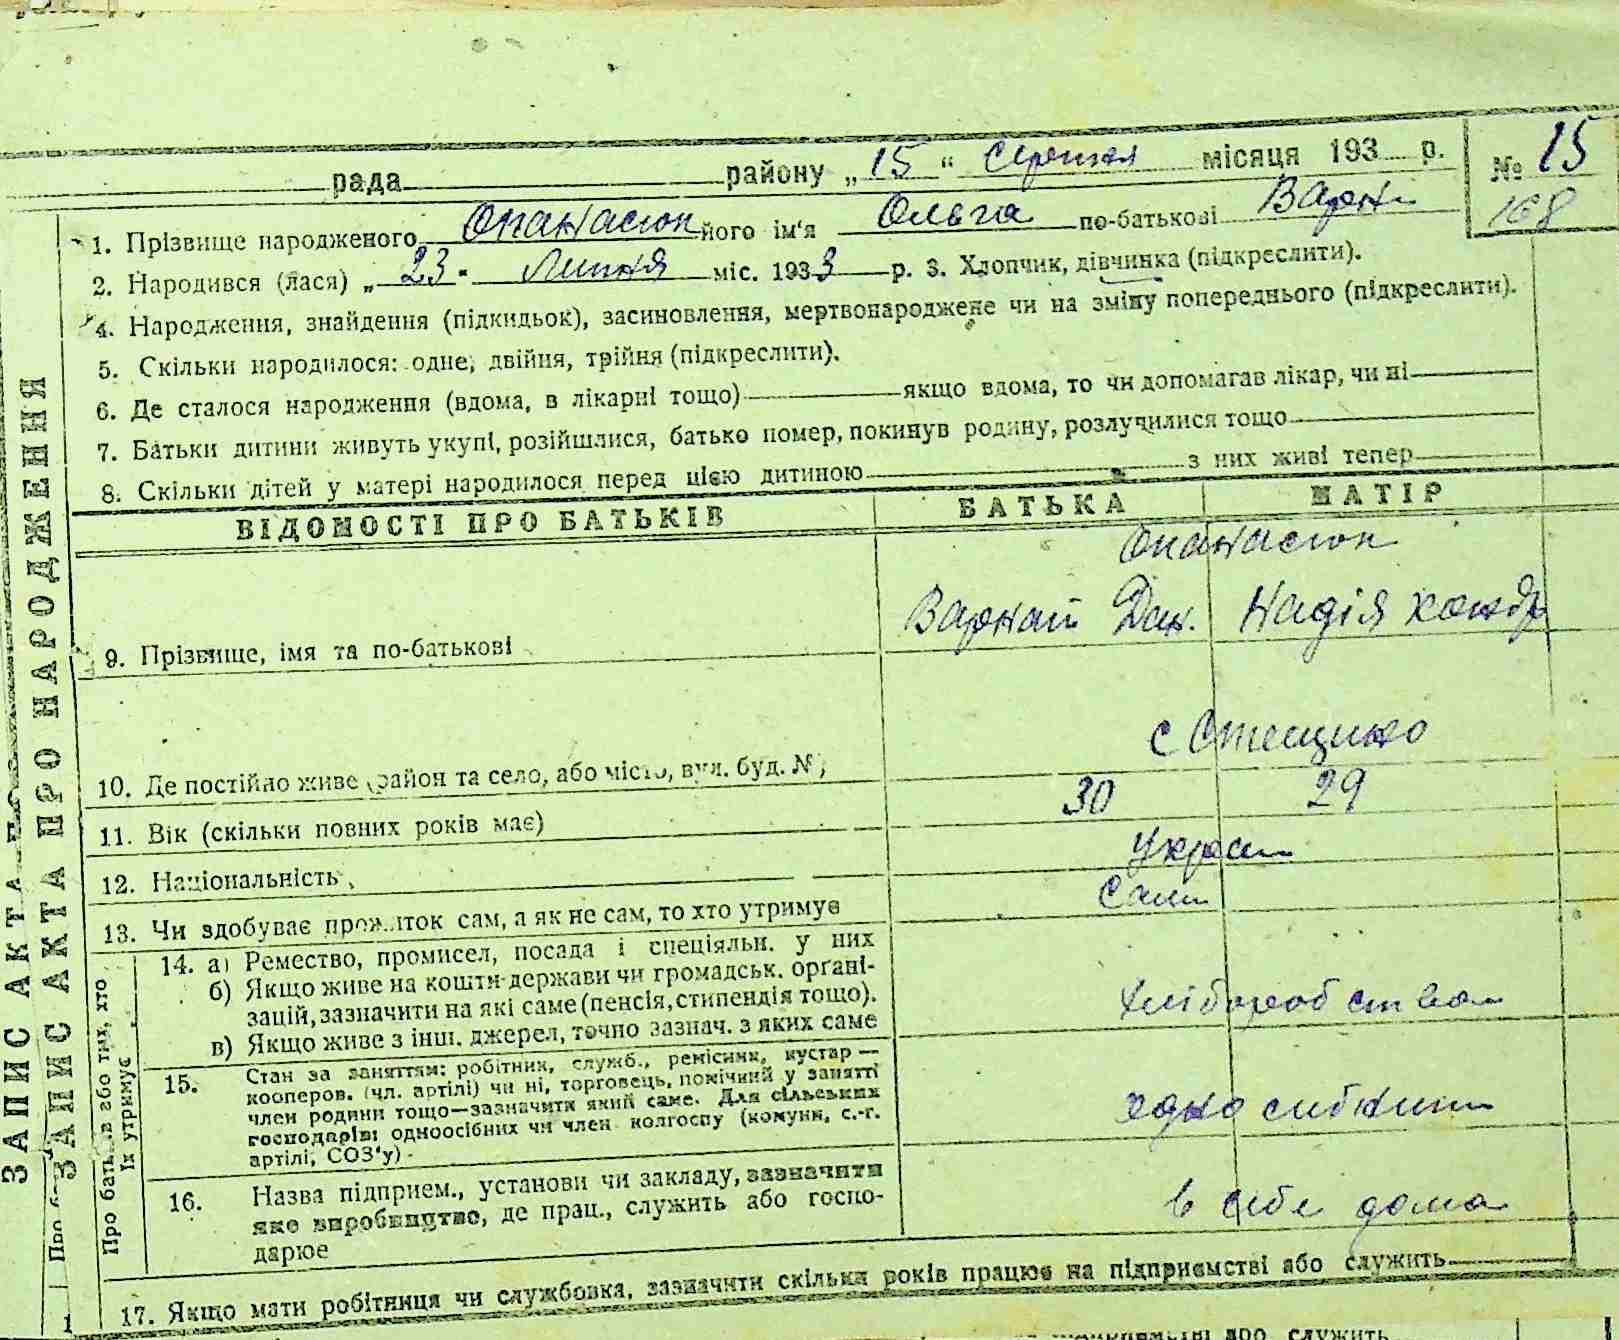 рада района „15“ серпня місяця 193 р. № 15
168
1. Прізвище народженого Опанасюк його ім'я Ольга по-батькові Варн
2. Народився (лася) „23“ Липня міс. 1933 р. 3. Хлопчик, дівчинка (підкреслити).
4. Народження, знайдення (підкидьок), засиновлення, мертвонароджене чи на зміну попереднього (підкреслити).
5. Скільки народилося: одне, двійня, трійня (підкреслити).
6. Де сталося народження (вдома, в лікарні тощо) якщо вдома, то чи допомагав лікар, чи ні
7. Батьки дитини живуть укупі, розійшлися, батько помер, покинув родину, розлучилися тощо
8. Скільки дітей у матері народилося перед цією дитиною з них живі тепер
ВІДОМОСТІ ПРО БАТЬКІВ БАТЬКА МАТІР
Опанасюк
9. Прізвище, імя та по-батькові Варнай Дан. Надія Кондр
с Стецико
10. Де постійно живе (район та село, або місто, вул. буд. №)
11. Вік (скільки повних років має) 30 29
12. Національність Україн
13. Чи здобуває прожиток сам, а як не сам, то хто утримує Сам
14. а) Ремество, промисел, посада і спеціяльн. у них
б) Якщо живе на кошти держави чи громадськ. органі-
зацій, зазначити на які саме (пенсія, стипендія тощо).
в) Якщо живе з інш. джерел, точно зазнач. з яких саме
хліборобство
15. Стан за заняттям: робітник, служб., ремісник, кустар —
кооперов. (чл. артілі) чи ні, торговець, помічний у занятті
член родини тощо—зазначити який саме. Для сільських
господарів: одноосібних чи член колгоспу (комуни, с.-г.
артілі, СОЗ'у)
16. Назва підприєм., установи чи закладу, зазначити
яке виробництво, де прац., служить або госпо-
дарює
в себе дома
17. Якщо мати робітниця чи службовка, зазначити скільки років працює на підприємстві або служить
ЗАПИС АКТА ПРО НАРОДЖЕННЯ
ЗАПИС АКТА
Про батьків або тих, хто
їх утримує